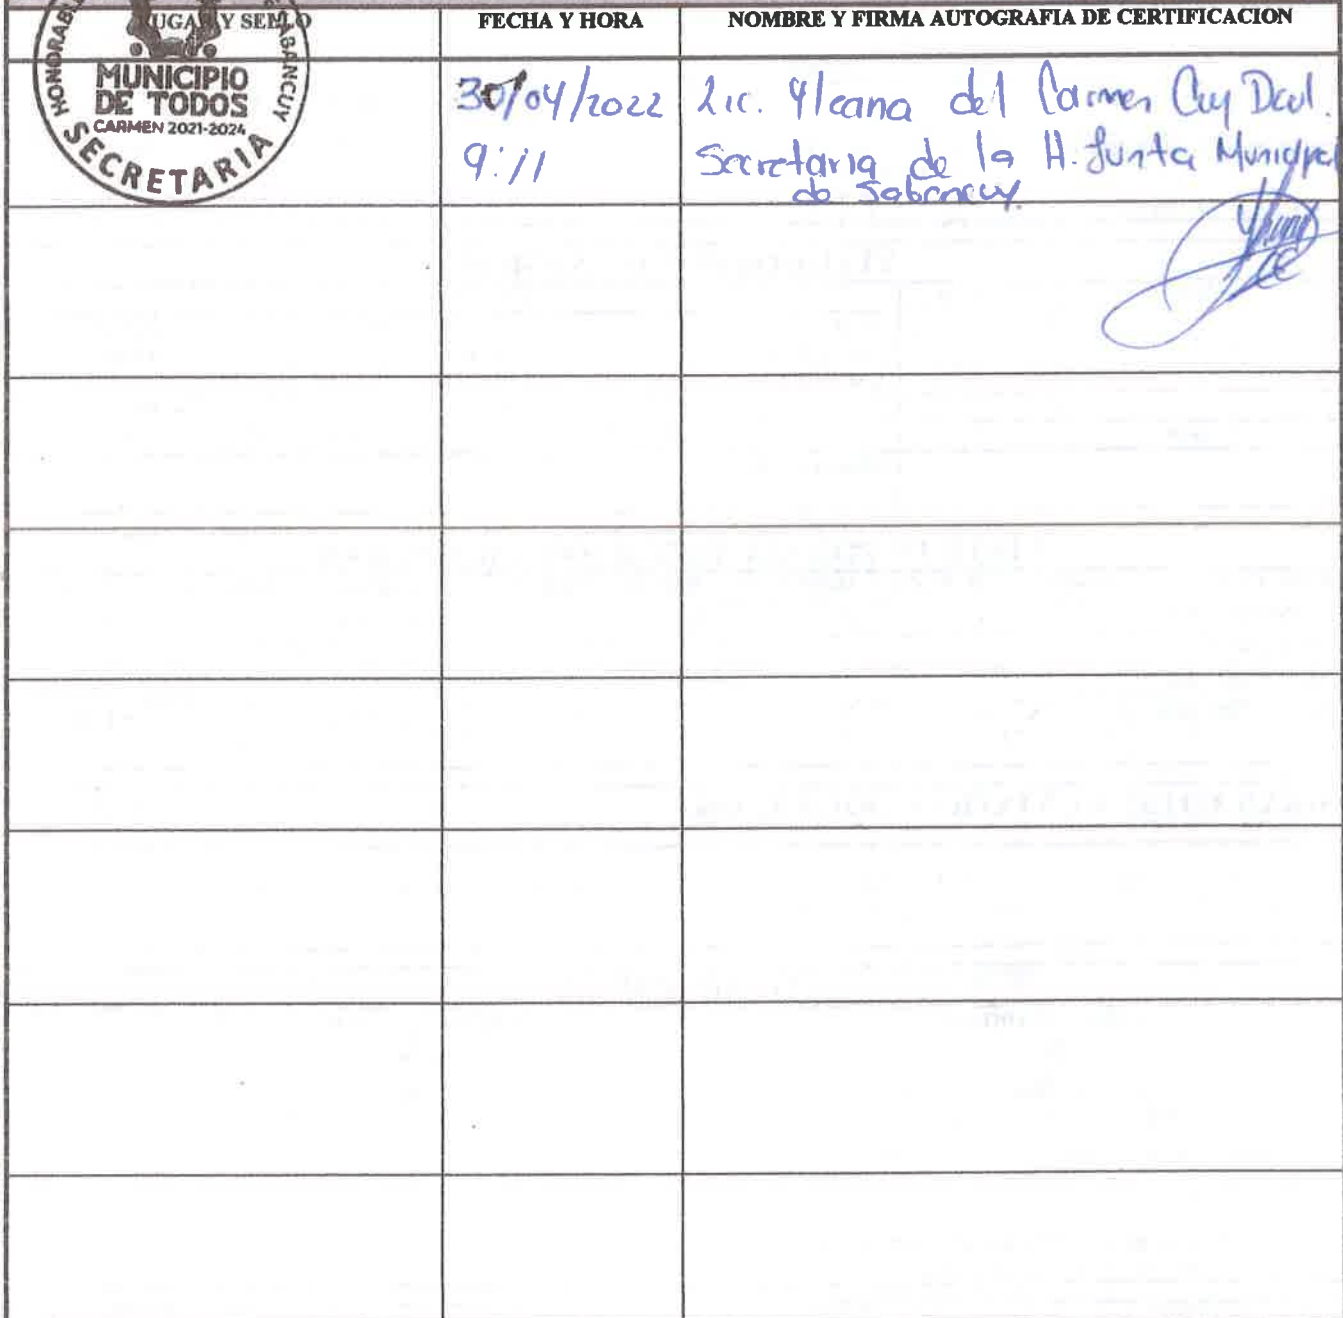 LUGAR Y SELLO
FECHA Y HORA
NOMBRE Y FIRMA AUTOGRAFIA DE CERTIFICACION
HONORABLE
SABANCUY
MUNICIPIO
DE TODOS
CARMEN 2021-2024
SECRETARIA
30/04/2022
9:11
Lic. Yleana del Carmen Cuy Dcul.
Secretaria de la H. Junta Municipal
de Sabancuy.